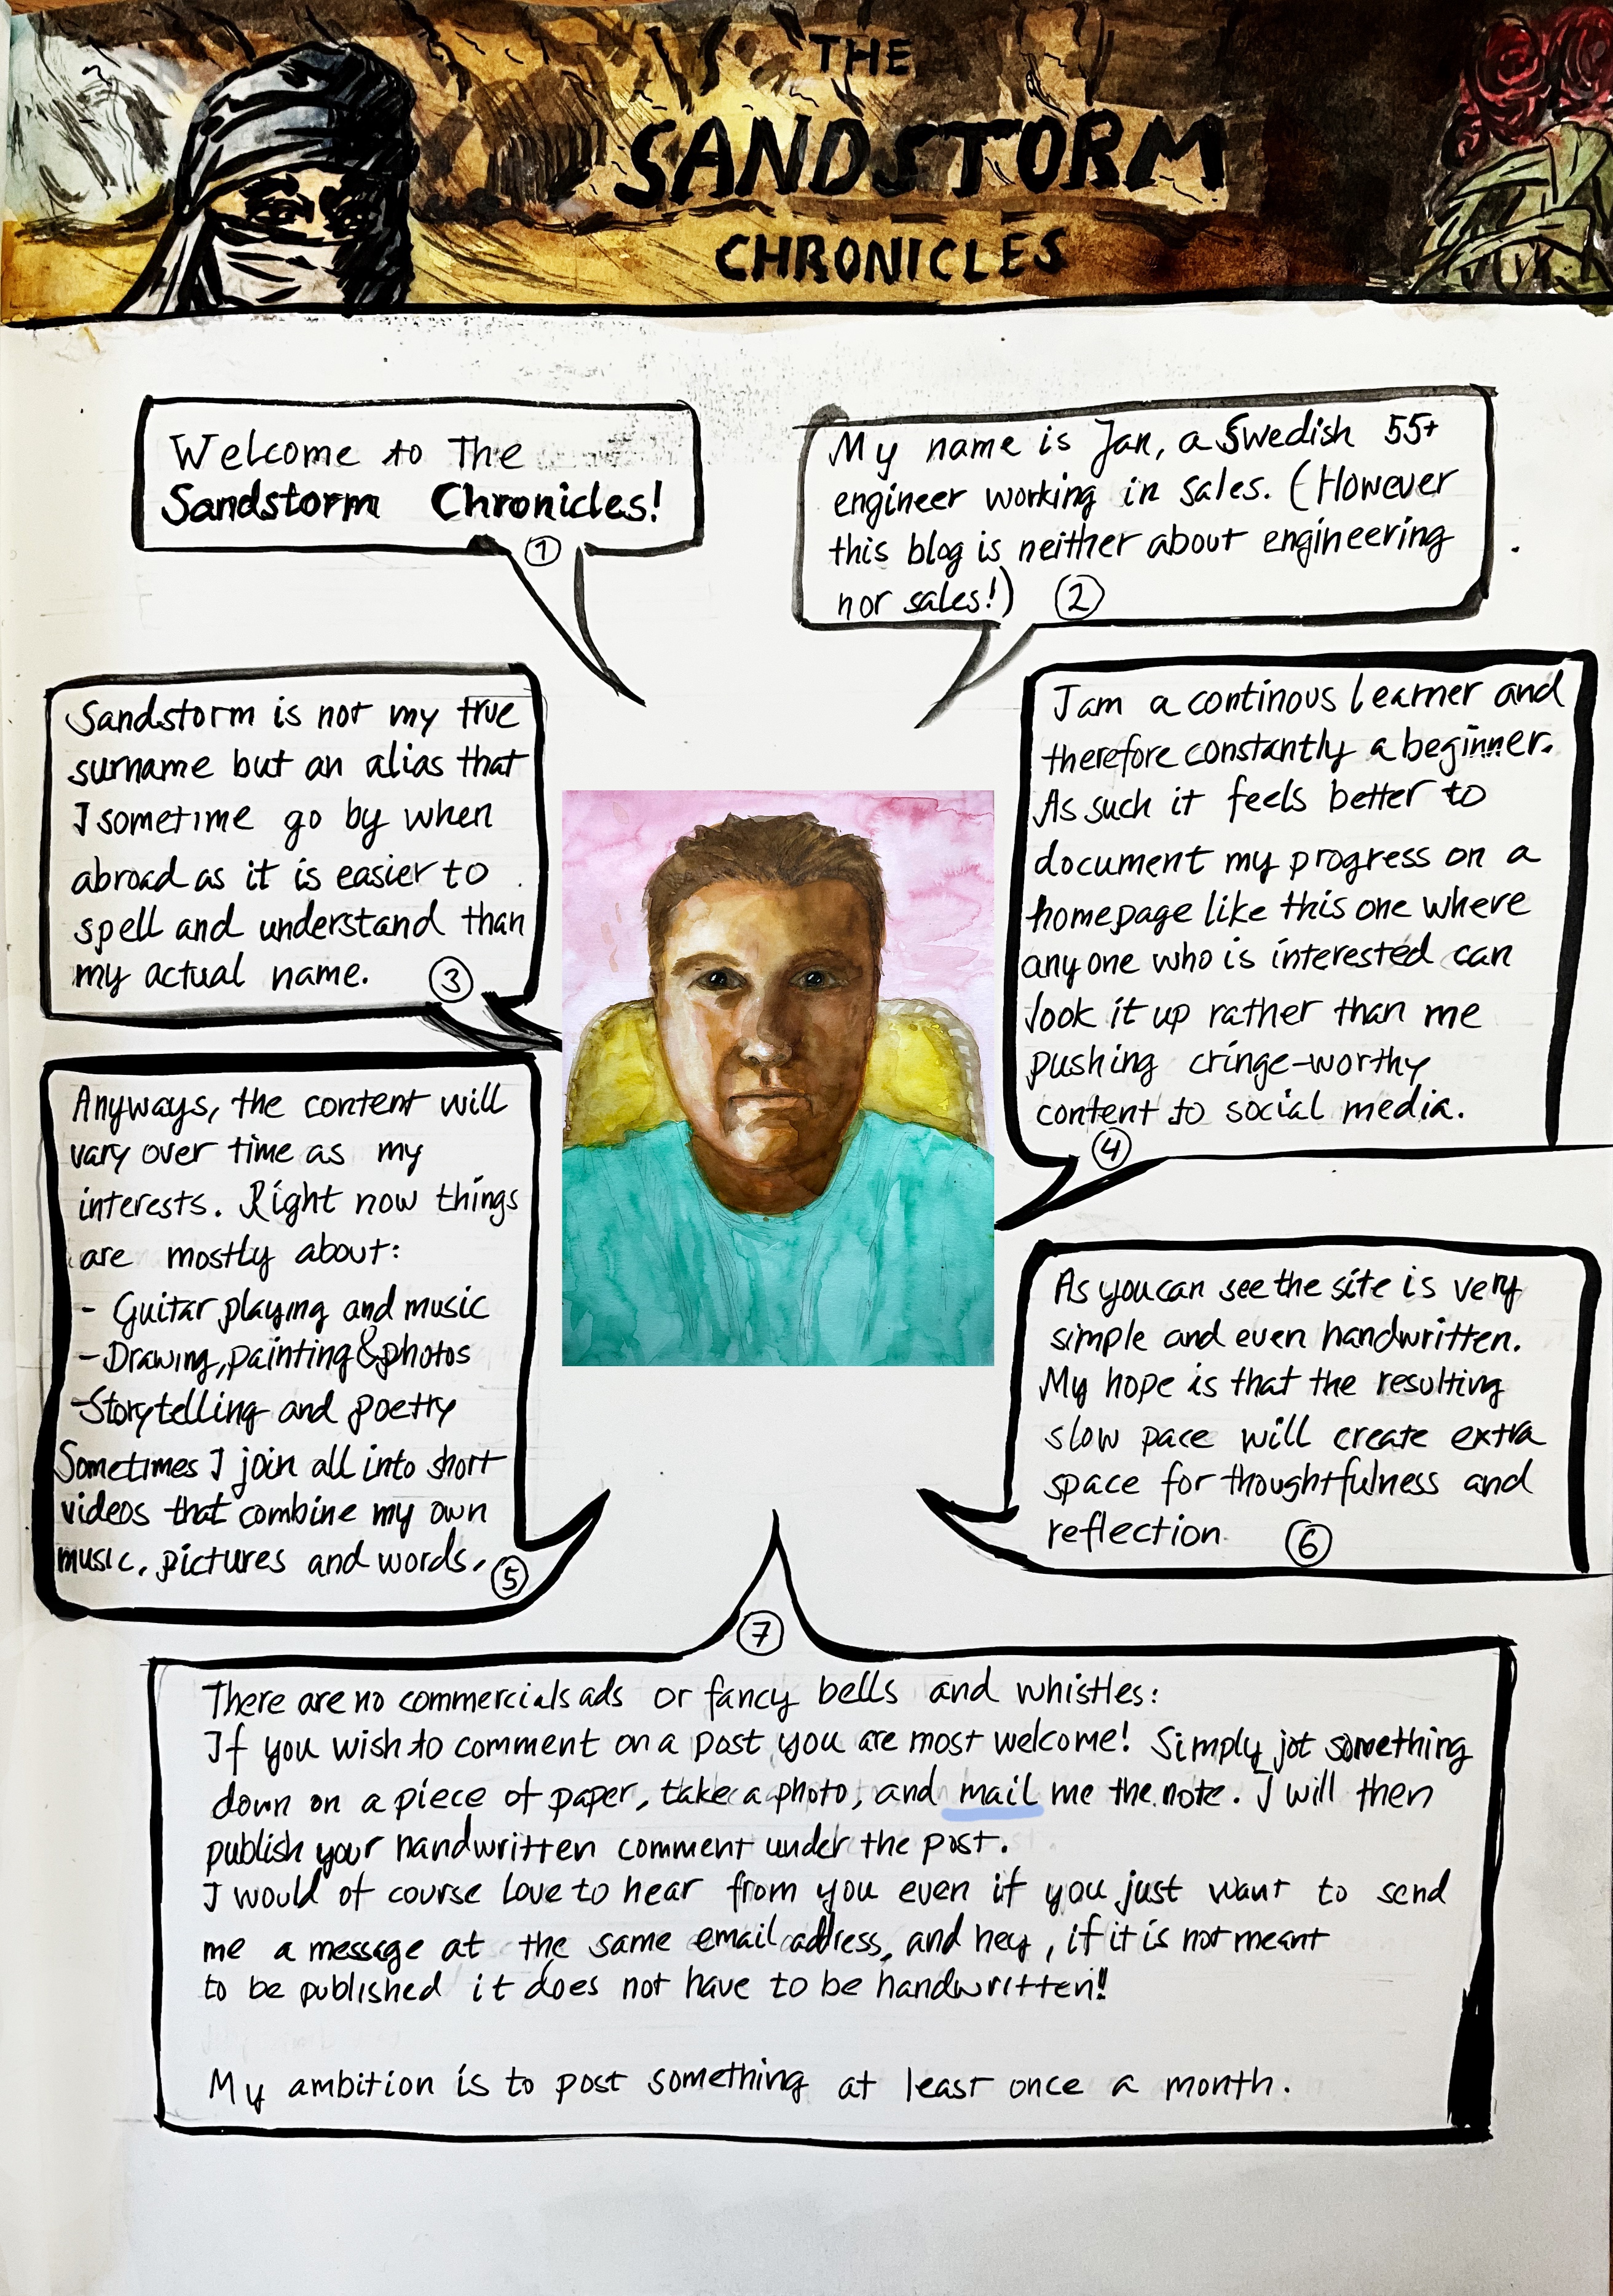 THE
SANDSTORM
CHRONICLES
Welcome to The
Sandstorm Chronicles!
1
My name is Jan, a Swedish 55+
engineer working in sales. (However
this blog is neither about engineering
nor sales!)
2
Sandstorm is not my true
surname but an alias that
I sometime go by when
abroad as it is easier to
spell and understand than
my actual name.
3
I am a continous learner and
therefore constantly a beginner.
As such it feels better to
document my progress on a
homepage like this one where
anyone who is interested can
look it up rather than me
pushing cringe-worthy
content to social media.
4
Anyways, the content will
vary over time as my
interests. Right now things
are mostly about:
- Guitar playing and music
- Drawing, painting & photos
- Storytelling and poetry
Sometimes I join all into short
videos that combine my own
music, pictures and words.
5
As you can see the site is very
simple and even handwritten.
My hope is that the resulting
slow pace will create extra
space for thoughtfulness and
reflection
6
7
There are no commercials ads or fancy bells and whistles:
If you wish to comment on a post you are most welcome! Simply jot something
down on a piece of paper, take a photo, and mail me the note. I will then
publish your handwritten comment under the post.
I would of course love to hear from you even if you just want to send
me a message at the same email address, and hey, if it is not meant
to be published it does not have to be handwritten!!
My ambition is to post something at least once a month.